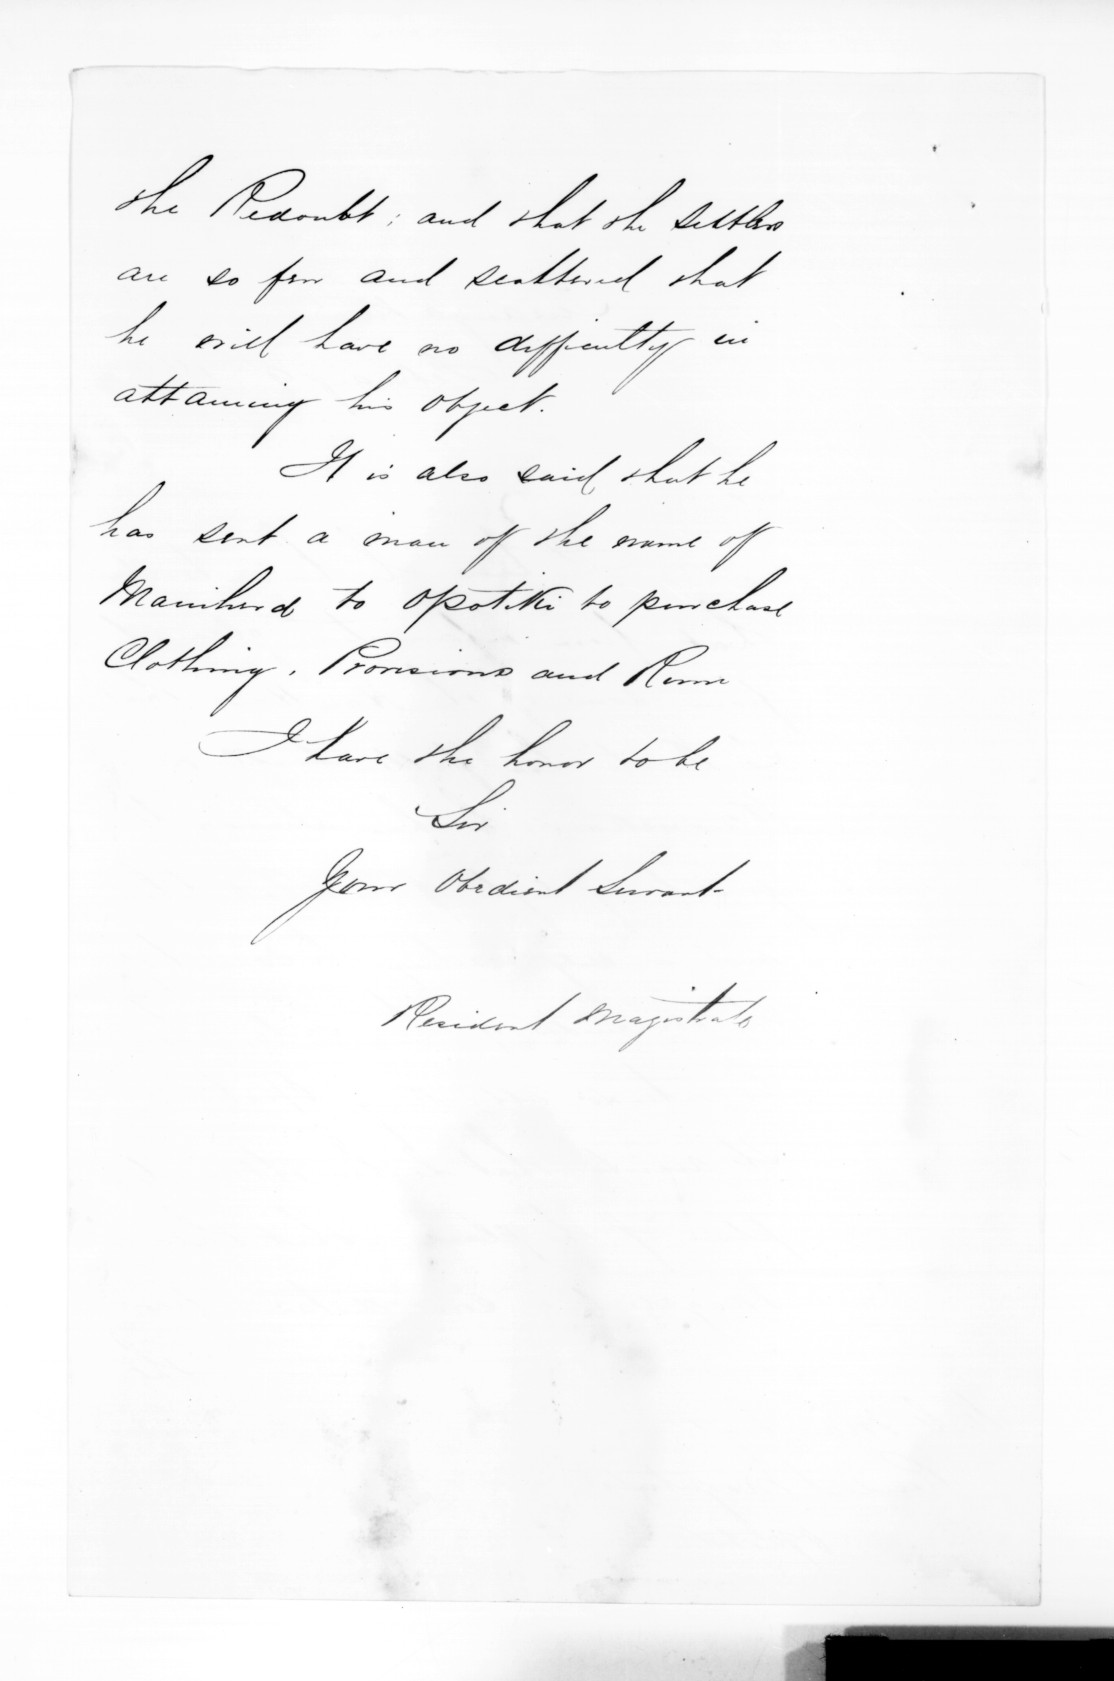 the Redoubt; and that the settlers
are so few and scattered that
he will have no difficulty in
attaining his object.
It is also said that he
has sent a man of the name of
to Opotiki to purchase
Clothing, Provisions and Rum
I have the honor to be
Sir
Your Obedient Servant
Resident Magistrate